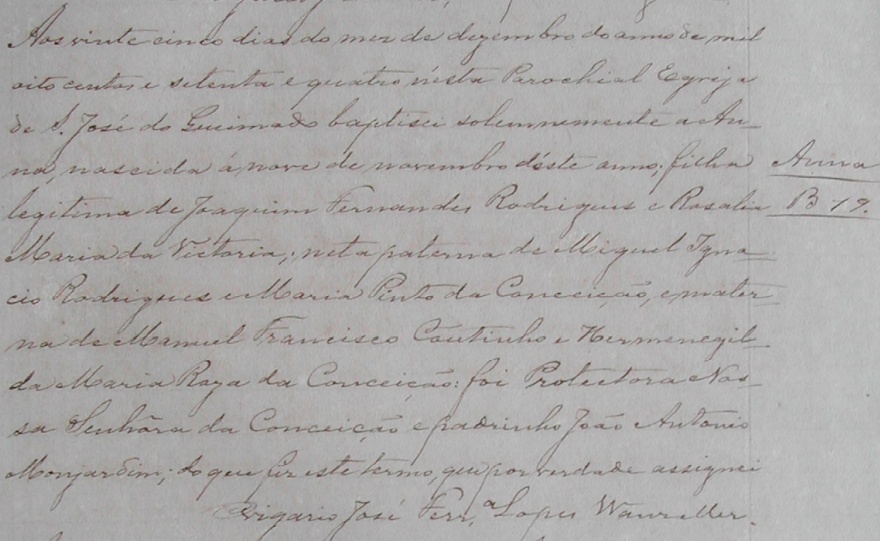 Aos vinte cinco dias do mez de dezembro do anno de mil
oito centos e setenta e quatro n'esta Parochial Egreja
de S. José do Queimado baptisei solemnemente a An-
na, nascida á nove de novembro déste anno; filha
Anna
legitima de Joaquim Fernandes Rodrigues e Rosalia
B 19.
Maria da Victoria; neta paterna de Miguel Igna-
cio Rodrigues e Maria Pinto da Conceição, e mater-
na de Manuel Francisco Coutinho e Hermenegil-
da Maria Roza da Conceição: foi Protectora Nos-
sa Senhôra da Conceição e padrinho João Antonio
Monjardim; do que fiz este termo, que por verdade assignei
Vigario José Ferr.ª Lopes Wanzeller.